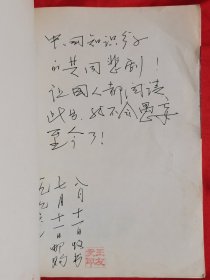 中国知识分子
的共同悲剧！
让国人都阅读
此书，就不会愚弄
至今了！
八月十一日收书
七月十一日邮购